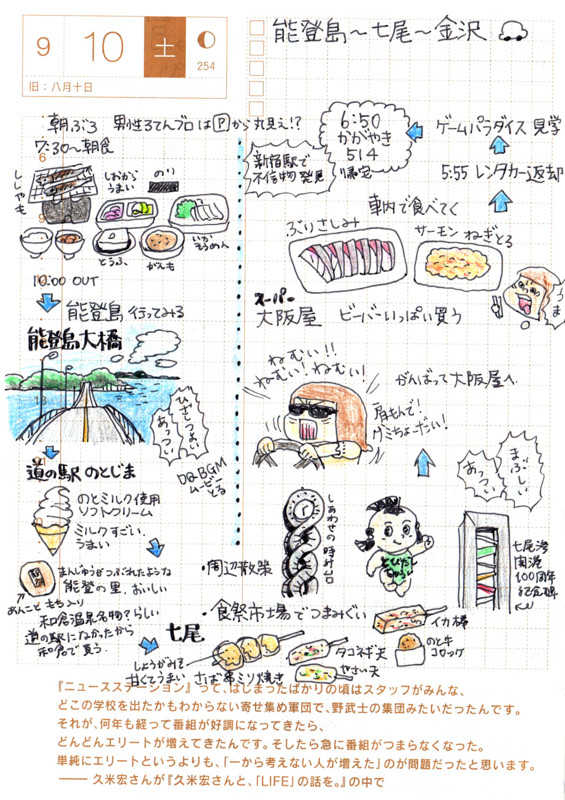 9 10 土 254
旧：八月十日
能登島～七尾～金沢
朝ぶろ 男性ろてんブロはPから丸見え!?
7:30～朝食
ししゃも
しおから
うまい
のり
いか
そうめん
とうふ
がんも
10:00 OUT
能登島 行ってみる
能登島大橋
ひざしつよい
あっつい
道の駅 のとじま
DQ BGM
ムービー
とる
のとミルク使用
ソフトクリーム
ミルクすごい、
うまい
まんじゅうがつぶれたような
能登の里、おいしい
あんことももより
和倉温泉名物?らしい
道の駅になかったから
和倉で買う
七尾
・周辺散策
しあわせの時計台
とうびた
七尾港
開港
100周年
記念碑
まぶしい
あっつい
・食祭市場でつまみぐい
しょうがみそ
甘くてうまい
さば串ミリ焼き
タコネギ天
やさい天
イカ棒
のと牛
コロッケ
がんばって大阪屋へ
肩もんで!
グミちょーだい!
ねむい!!
ねむい!ねむい!
スーパー
大阪屋 ビーバーいっぱい買う
ぶりさしみ
サーモンねぎとろ
うま
車内で食べてく
5:55 レンタカー返却
ゲームパラダイス 見学
6:50
かがやき
514
帰宅
新宿駅で
不信物発見
『ニュースステーション』って、はじまったばかりの頃はスタッフがみんな、
どこの学校を出たかもわからない寄せ集め軍団で、野武士の集団みたいだったんです。
それが、何年も経って番組が好調になってきたら、
どんどんエリートが増えてきたんです。そしたら急に番組がつまらなくなった。
単純にエリートというよりも、「一から考えない人が増えた」のが問題だったと思います。
―― 久米宏さんが『久米宏さんと、「LIFE」の話を。』の中で